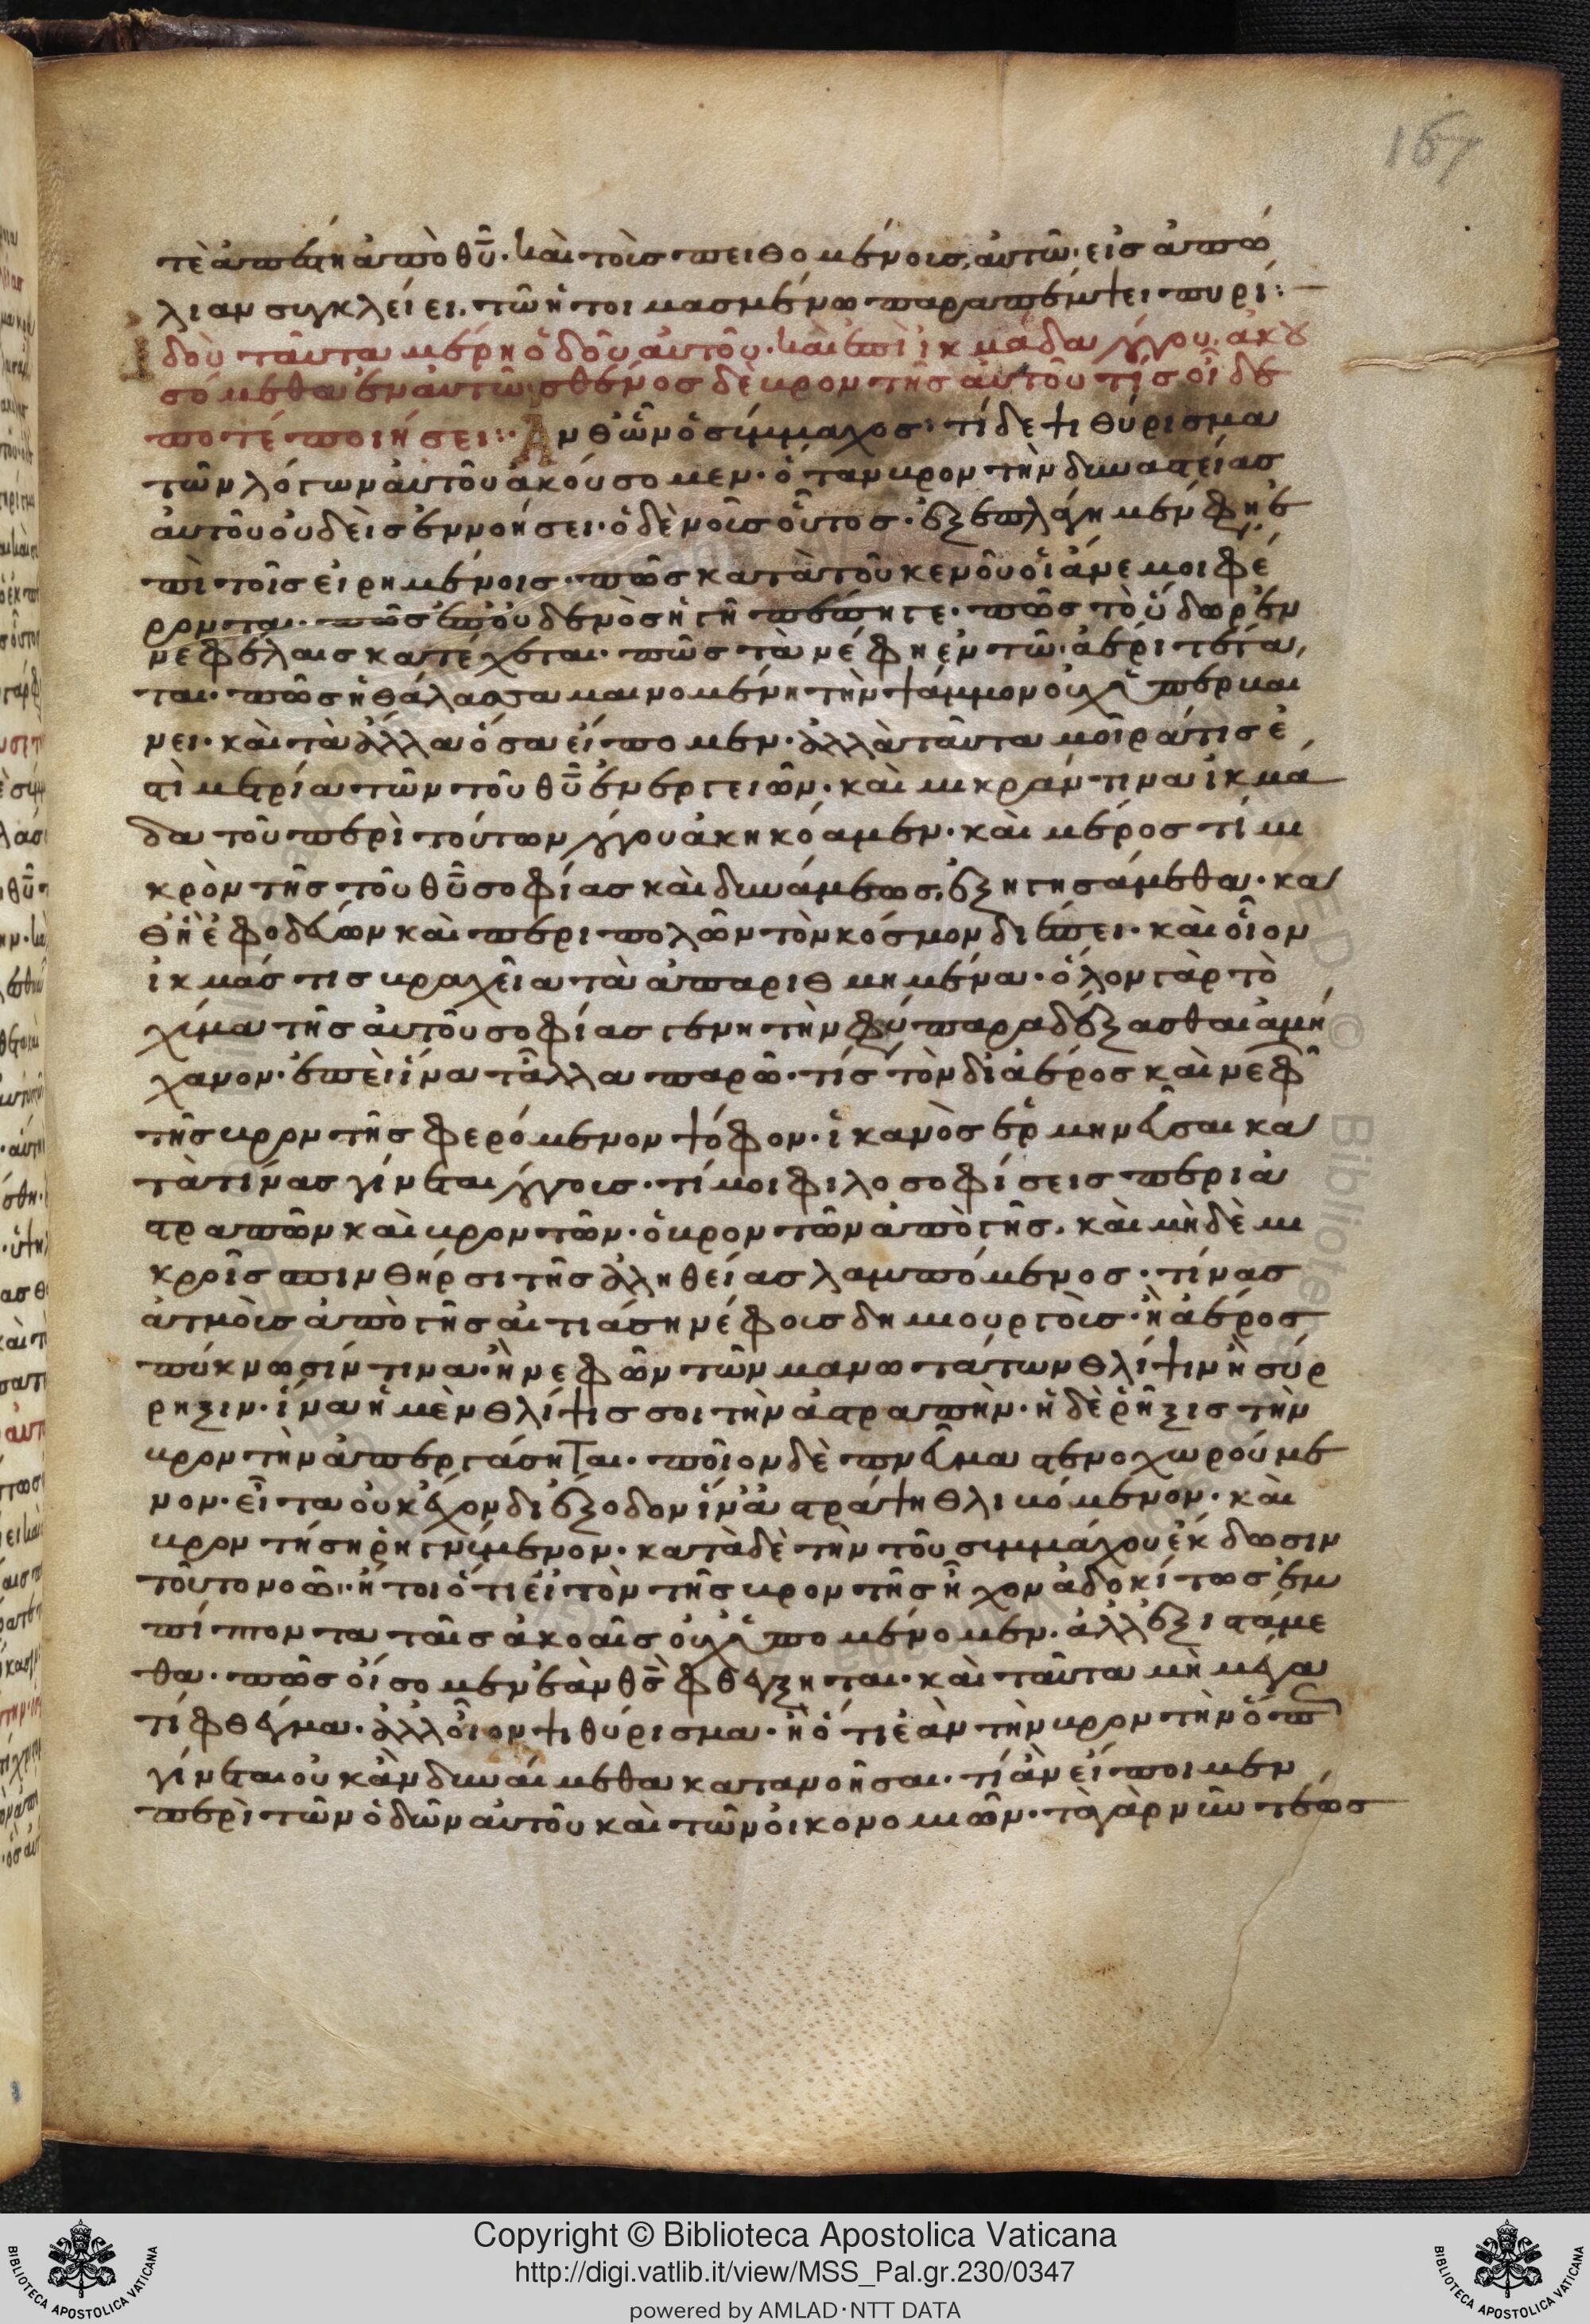 167
τὲ ἀπάτη ἀπὸ θῦ· καὶ τοῖς πειθομένοις αὐτῶ· εἰς ἀπώ
λιαν συγκλείει. τῶ ἡτοιμασμένω παραπέμψει πυρί:—
Ἰδοὺ ταῦτα μέρη ὁδοῦ αὐτοῦ· καὶ ἐπὶ ἰκμάδα λόγου ἀκου
σόμεθα ἐν αὐτῶ· σθένος δὲ βροντῆς αὐτοῦ τίς οἶδε
πότε ποιήσει:· Ἀνθ' ὧν ὁ σύμμαχος· τί δὲ ψιθύρισμα
τῶν λόγων αὐτοῦ ἀκούσομεν· ὅταν βροντὴν δυναστείας
αὐτοῦ οὐδεὶς ἐννοήσει· ὁ δὲ νοῦς οὗτος· ἐξεπλάγημέν φησιν ἐ
πὶ τοῖς εἰρημένοις· πῶς κατὰ τοῦ κενοῦ οἱ ἄνεμοι φέ
ρονται· πῶς ἐπ' οὐδενὸς ἡ γῆ πέπηγε· πῶς τὸ ὕδωρ ἐν
νεφέλαις κατέχεται· πῶς τὰ νέφη ἐν τῶ ἀέρι τέτα
ται· πῶς ἡ θάλασσα μαινομένη τὴν ψάμμον οὐχ ὑπερβαί
νει· καὶ τὰ ἄλλα ὅσα εἴπομεν· ἀλλὰ ταῦτα μοῖρά τις ἐ
στὶ μετρία τῶν τοῦ θῦ ἐνεργειῶν· καὶ μικράν τινα ἰκμά
δα τοῦ περὶ τούτων λόγου ἀκηκόαμεν· καὶ μέρος τι μι
κρὸν τῆς τοῦ θῦ σοφίας καὶ δυνάμεως, ἐξητησάμεθα· κα
θ' ἣν ἐφοδεύων καὶ περιπολῶν τὸν κόσμον διέπει· καὶ οἷον
ἰκμάς τις βραχεῖα τὰ ἀπαριθμημένα· ὅλον γὰρ τὸ
χύμα τῆς αὐτοῦ σοφίας γενητὴν φύσιν παραδέξασθαι ἀμή
χανον· ἐπεὶ ἵνα τἄλλα παρῶ· τίς τὸν δι' ἀέρος καὶ νεφῶν
τῆς βροντῆς φερόμενον ψόφον· ἱκανὸς ἑρμηνεῦσαι κα
τὰ τίνας γίνεται λόγους· τί μοι φιλοσοφήσεις περὶ ἀ
στραπῶν καὶ βροντῶν· ὁ βροντῶν ἀπὸ γῆς· καὶ μηδὲ μι
κροῖς σπινθῆρσι τῆς ἀληθείας λαμπόμενος· τίνας
ἀτμοὺς ἀπὸ γῆς αἰτιάση νέφους δημιουργούς· ἢ ἀέρος
πύκνωσίν τινα· ἢ νεφῶν τῶν μανωτάτων θλίψιν ἢ σύρ
ρηξιν· ἵνα ἡ μὲν θλίψις σοι τὴν ἀστραπήν· ἡ δὲ ῥῆξις τὴν
βροντὴν ἀπεργάσηται· ποῖον δὲ πνεῦμα στενοχωρούμε
νον· εἶτα οὐκ ἔχον διέξοδον ἵν' ἀστράψη θλιβόμενον· καὶ
βροντήση ῥηγνύμενον· κατὰ δὲ τὴν τοῦ συμμάχου ἔκδοσιν
τοῦτο νοῶ· ἤτοι ὅτι εἰ τὸν τῆς βροντῆς ἦχον ἀδοκήτως ἐμ
πίπτοντα ταῖς ἀκοαῖς οὐχ ὑπομένομεν· ἀλλ' ἐξιστάμε
θα· πῶς οἴσομεν ἐὰν θς φθέγξηται· καὶ ταῦτα μὴ μέγα
τι φθέγμα· ἀλλ' οἷον ψιθύρισμα· ἢ ὅτι ἐὰν τὴν βροντὴν ὅπως
γίνεται οὐκ ἂν δυναίμεθα κατανοῆσαι· τί ἂν εἴποιμεν
περὶ τῶν ὁδῶν αὐτοῦ καὶ τῶν οἰκονομιῶν· τὰ γὰρ νῦν τέως
Copyright © Biblioteca Apostolica Vaticana
http://digi.vatlib.it/view/MSS_Pal.gr.230/0347
powered by AMLAD·NTT DATA
BIBLIOTECA APOSTOLICA VATICANA
BIBLIOTECA APOSTOLICA VATICANA